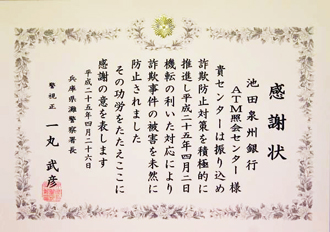 感謝状
池田泉州銀行
ATM照会センター 様
貴センターは振り込め
詐欺防止対策を積極的に
推進し平成二十五年四月二日
機転の利いた対応により
詐欺事件の被害を未然に
防止されました
その功労をたたえここに
感謝の意を表します
平成二十五年四月二十六日
兵庫県灘警察署長
警視正 一丸 武彦